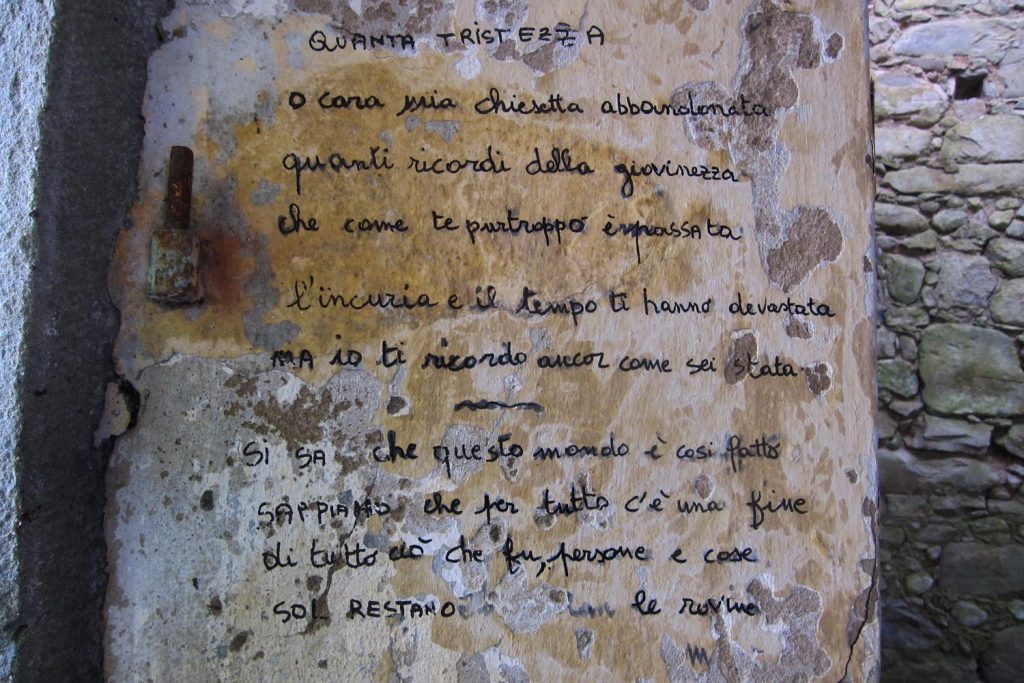 QUANTA TRISTEZZA
O cara mia chiesetta abbandonata
quanti ricordi della giovinezza
che come te purtroppo è passata
l'incuria e il tempo ti hanno devastata
MA io ti ricordo ancor come sei stata
SI SA che questo mondo è cosi fatto
SAPPIAMO che per tutto c'è una fine
di tutto ciò che fu, persone e cose
SOL RESTANO le rovine